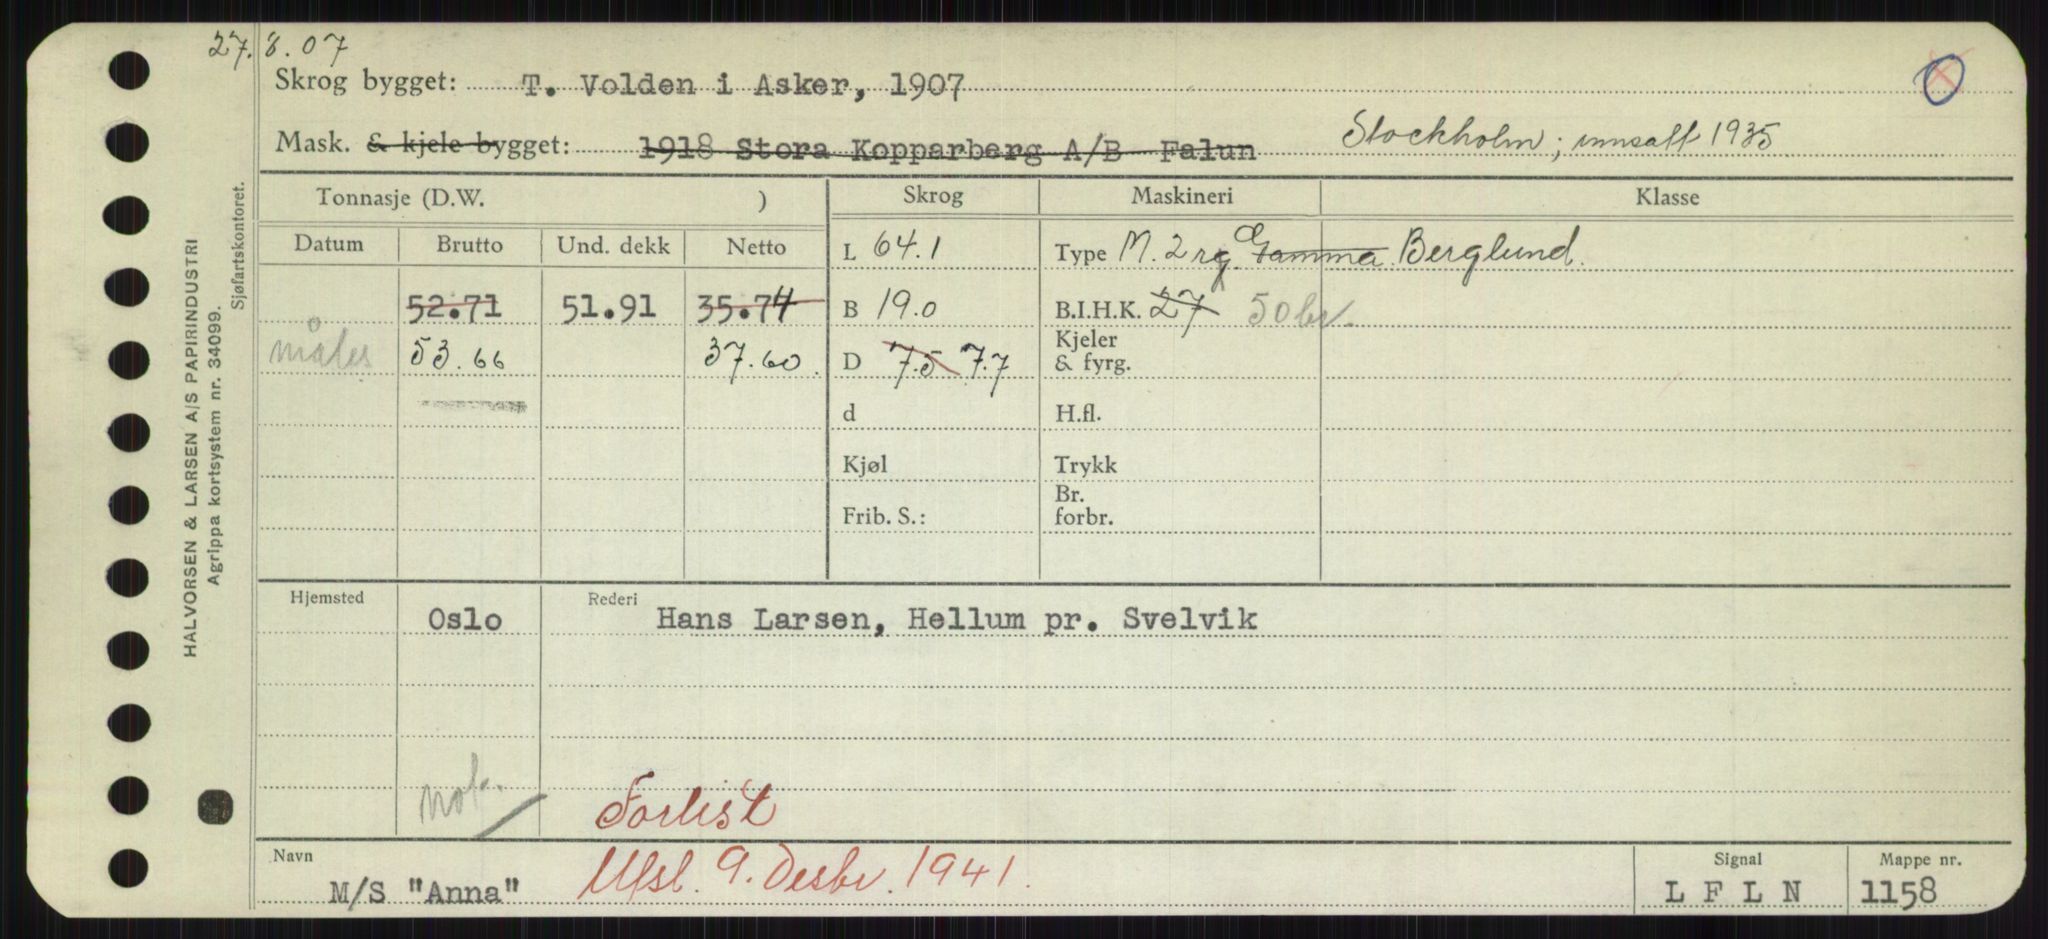 27. 8. 07
Skrog bygget: T. Volden i Asker, 1907
Mask. & kjele bygget: 1918 Stora Kopparberg A/B Falun Stockholm; innsatt 1935
Tonnasje (D.W. ) Skrog Maskineri Klasse
Datum Brutto Und. dekk Netto L 64.1 Type M. 2 rg. Gamma Berglund.
52.71 51.91 35.74 B 19.0 B.I.H.K. 27 50 br.
måles 53.66 37.60. D 7.5 7.7 Kjeler & fyrg.
d H.fl.
Kjøl Trykk
Frib. S.: Br. forbr.
Hjemsted Oslo Rederi Hans Larsen, Hellum pr. Svelvik
not.
Forlist
Navn M/S "Anna" Utsl. 9. Desbr. 1941. Signal L F L N Mappe nr. 1158
HALVORSEN & LARSEN A/S PAPIRINDUSTRI
Agrippa kortsystem nr. 34099.
Sjøfartskontoret.